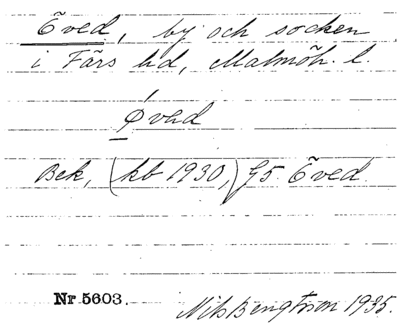 Õved, by och socken
i Färs hd, Malmöh. l.
Øved
Bek, (kb 1930,) G5 Õved
Nr 5603.
Nils Bengtsson 1935.